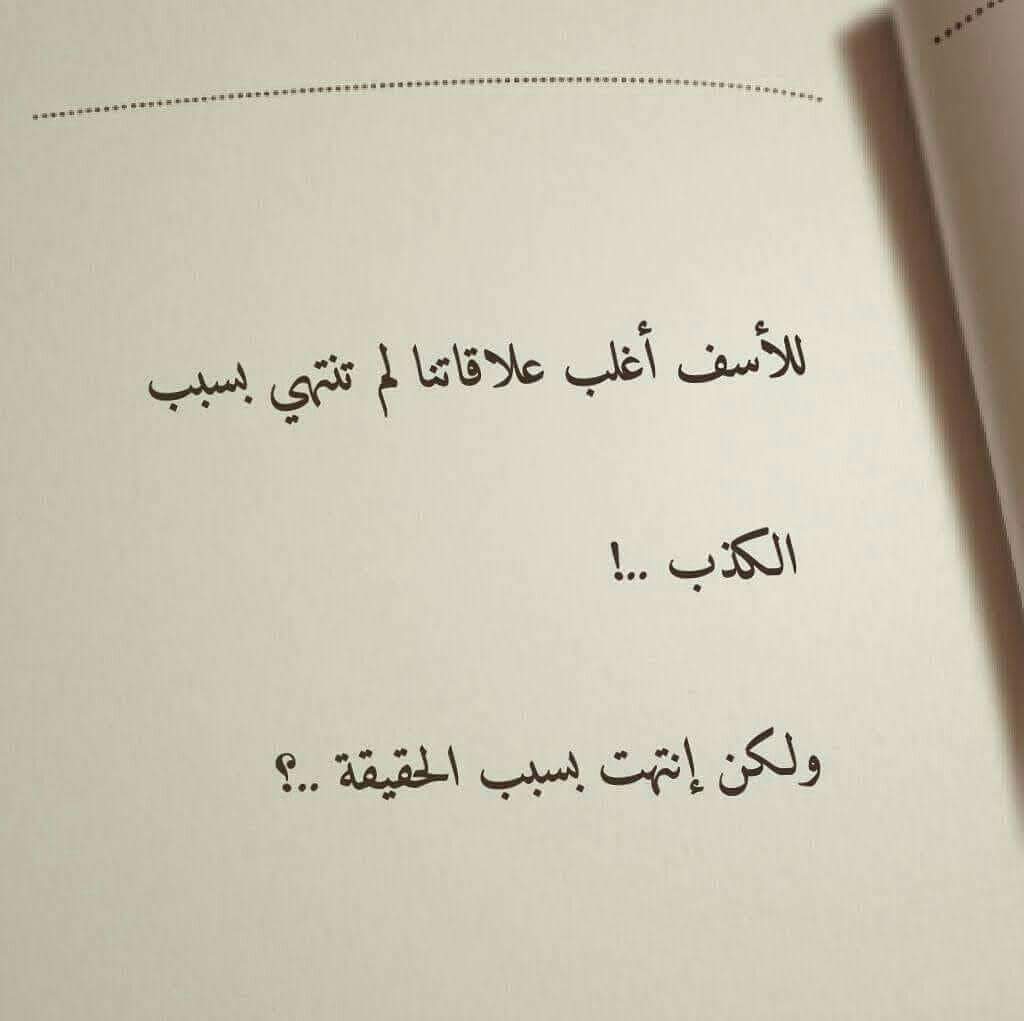 للأسف أغلب علاقاتنا لم تنتهي بسبب
الكذب ..!
ولكن إنتهت بسبب الحقيقة ..؟